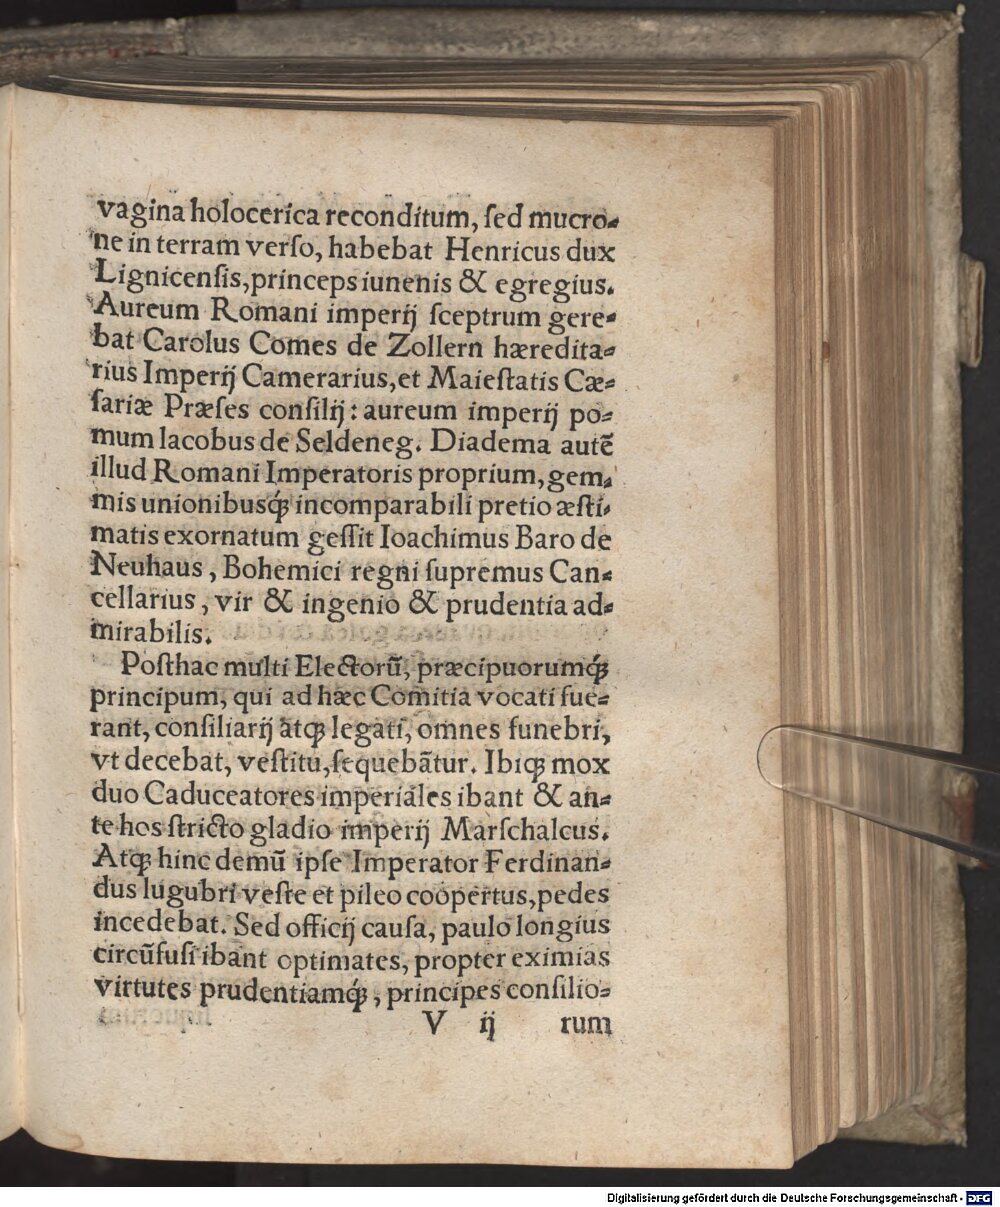 vagina holocerica reconditum, ſed mucro-
ne in terram verſo, habebat Henricus dux
Lignicenſis, princeps iunenis & egregius.
Aureum Romani imperij ſceptrum gere-
bat Carolus Comes de Zollern hæredita-
rius Imperij Camerarius, et Maieſtatis Cæ-
ſariæ Præſes conſilij: aureum imperij po-
mum Iacobus de Seldeneg. Diadema autē
illud Romani Imperatoris proprium, gem-
mis unionibusq́ꝫ incomparabili pretio æſti-
matis exornatum geſſit Ioachimus Baro de
Neuhaus, Bohemici regni ſupremus Can-
cellarius, vir & ingenio & prudentia ad-
mirabilis.
Poſthac multi Electorū, præcipuorumq́ꝫ
principum, qui ad hæc Comitia vocati fue-
rant, conſiliarij atqꝫ legati, omnes funebri,
vt decebat, veſtitu, ſequebātur. Ibiqꝫ mox
duo Caduceatores imperiales ibant & an-
te hos ſtricto gladio imperij Marſchalcus.
Atqꝫ hinc demū ipſe Imperator Ferdinan-
dus lugubri veſte et pileo coopertus, pedes
incedebat. Sed officij cauſa, paulo longius
circūfuſi ibant optimates, propter eximias
virtutes prudentiamq́ꝫ, principes conſilio-
V ij rum
Digitalisierung gefördert durch die Deutsche Forschungsgemeinschaft - DFG